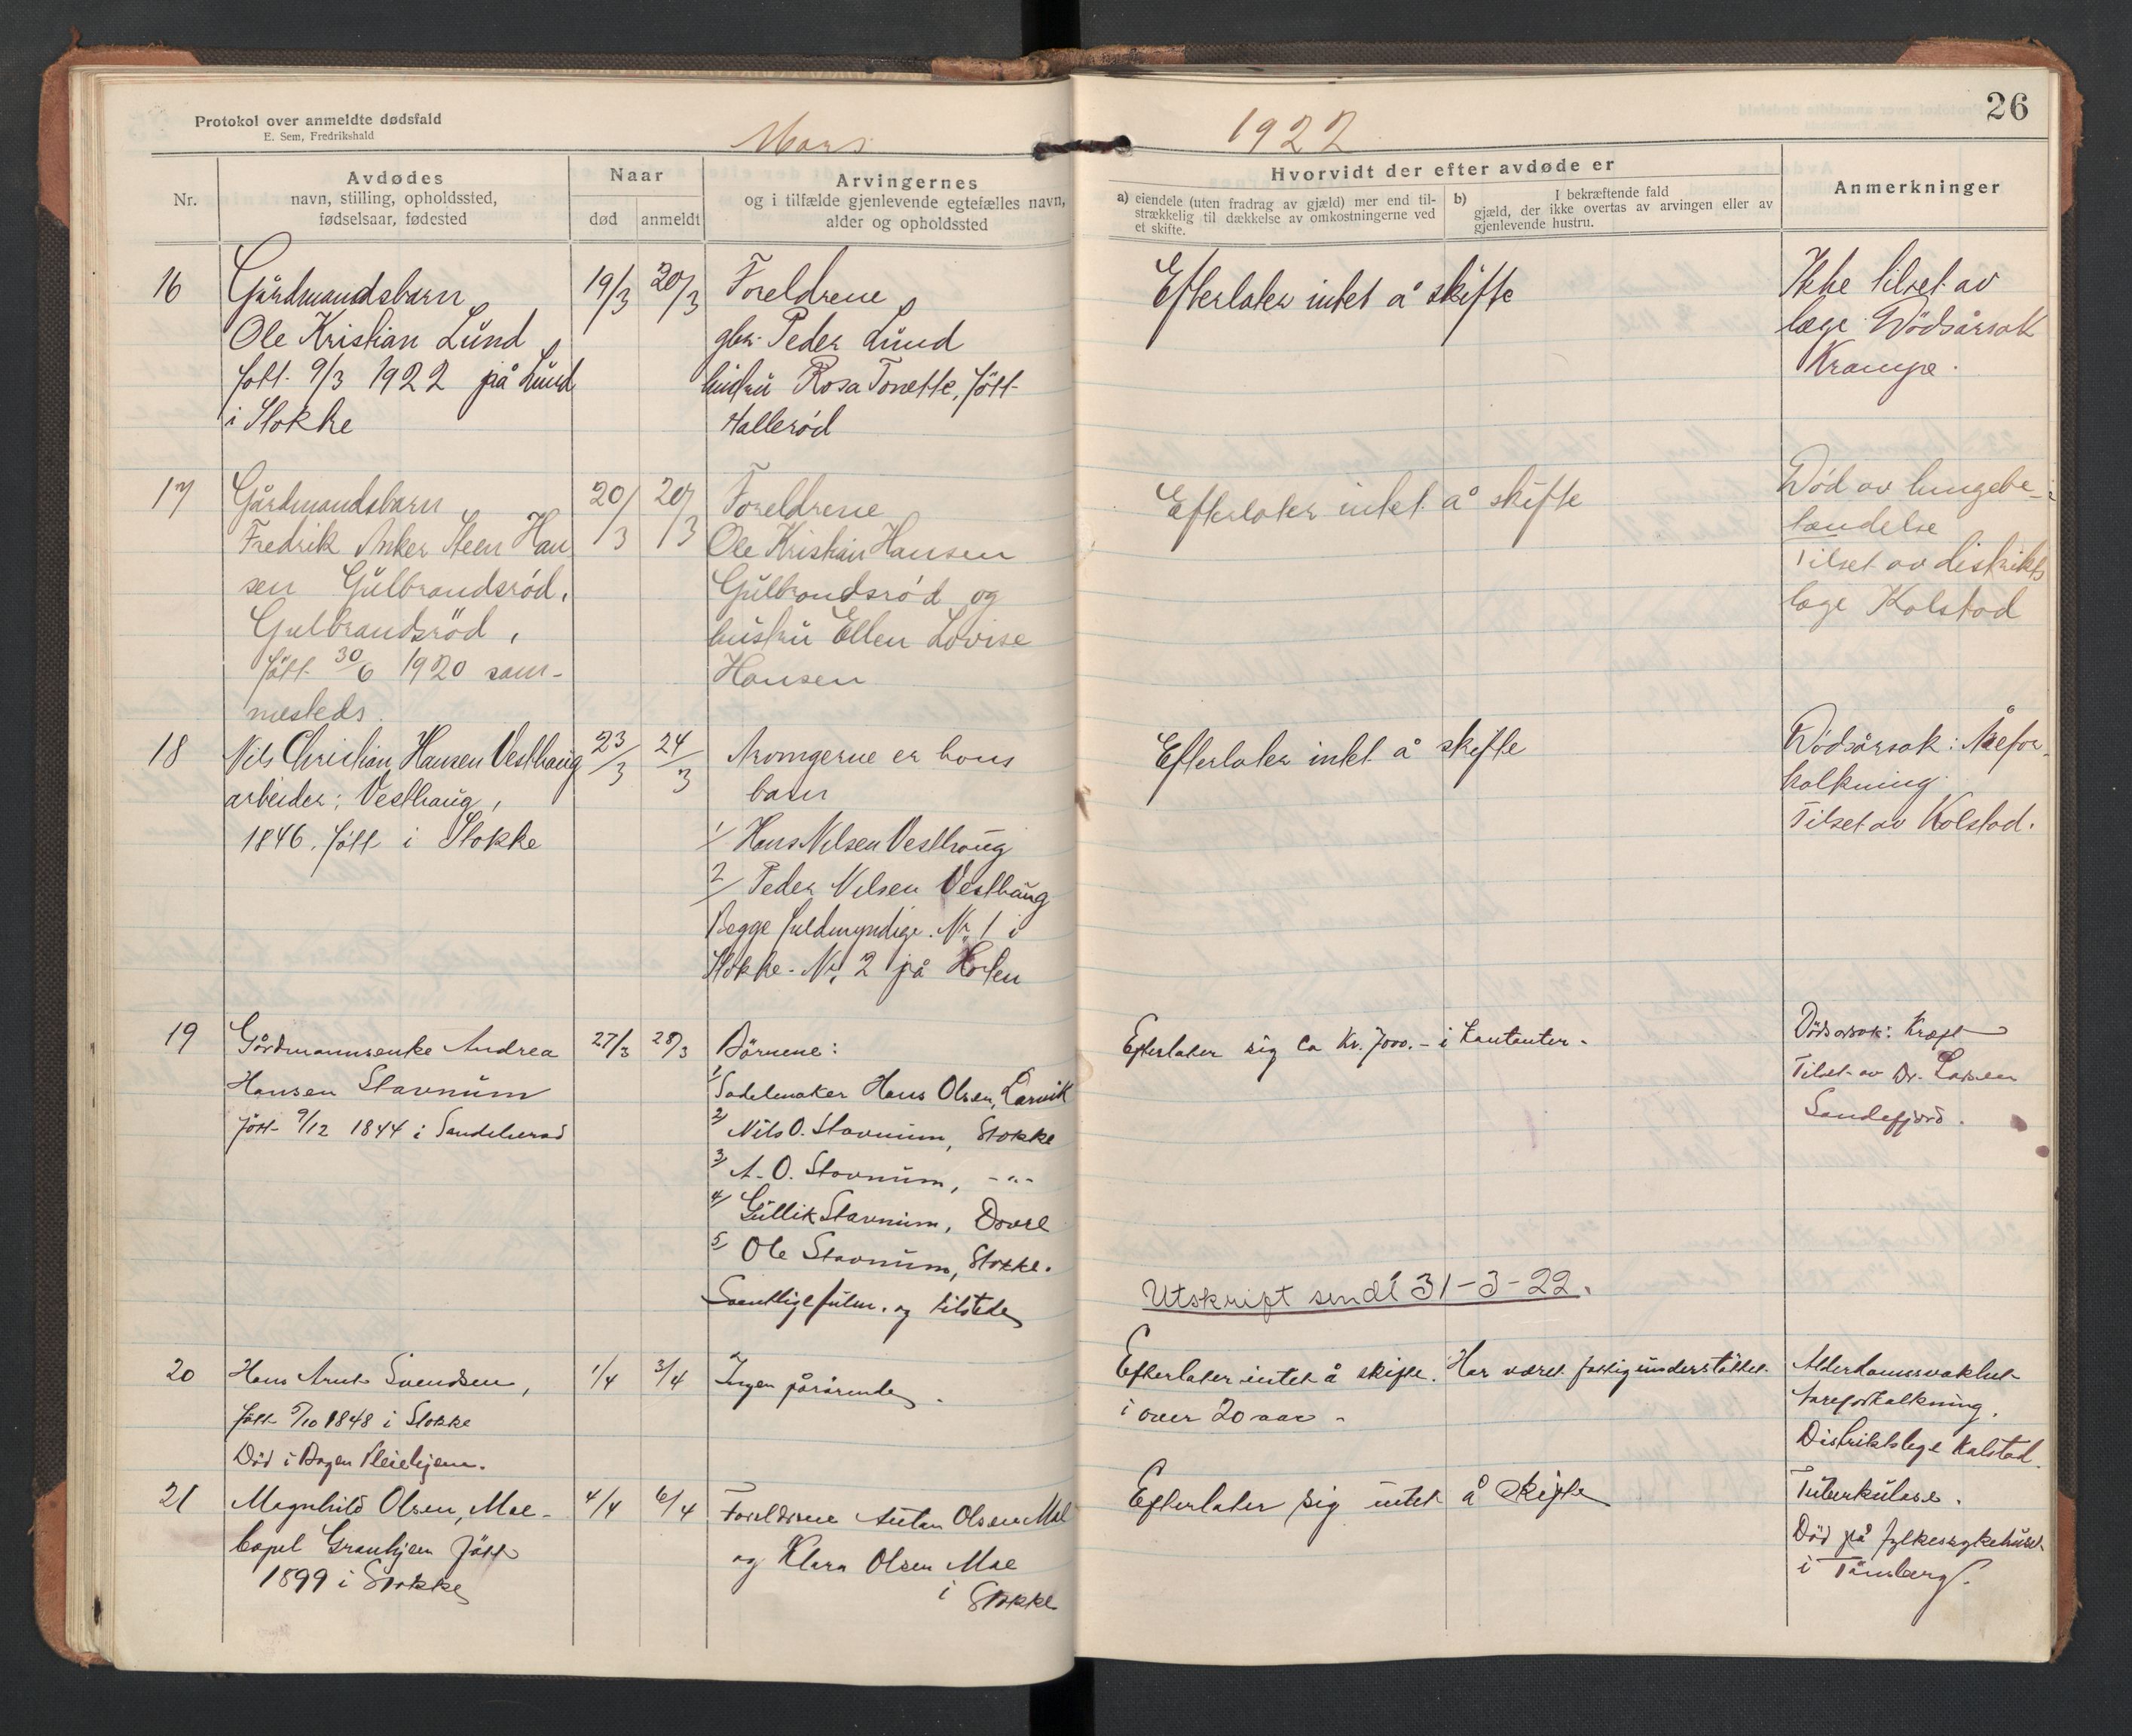 Protokol over anmeldte dødsfald
E. Sem, Fredrikshald
Mars
1922
26
Nr.
Avdødes
navn, stilling, opholdssted,
fødselsaar, fødested
Naar
død
anmeldt
Arvingernes
og i tilfælde gjenlevende egtefælles navn,
alder og opholdssted
Hvorvidt der efter avdøde er
a) eiendele (uten fradrag av gjæld) mer end til-
strækkelig til dækkelse av omkostningerne ved
et skifte.
b) I bekræftende fald
gjæld, der ikke overtas av arvingen eller av
gjenlevende hustru.
Anmerkninger
16
Gårdmandsbarn
Ole Kristian Lund
født 9/3 1922 på Lund
i Stokke
19/3
20/3
Foreldrene
gbr. Peder Lund
hustru Rosa Tonette, født
Hallerød
Efterlater intet å skifte
Ikke tilset av
læge Dödsårsak
Krampe.
17
Gårdmandsbarn
Fredrik Anker Steen Han
sen Gulbrandsrød,
Gulbrandsröd,
født 30/6 1920 sam-
mesteds.
20/3
20/3
Foreldrene
Ole Kristian Hansen
Gulbrandsrød og
hustru Ellen Lovise
Hansen
Efterlater intet å skifte
Död av lungebe-
tændelse
Tilset av distrikts
læge Kolstad
18
Nils Christian Hansen Vesthaug
arbeider; Vesthaug,
1846. født i Stokke
23/3
24/3
Arvingerne er hans
barn
1/ Hans Nilsen Vesthaug
2/ Peder Nilsen Vesthaug
Begge fuldmyndige. Nr. 1 i
Stokke. Nr. 2 på Horten
Efterlater intet å skifte
Dödsårsak: Årefor-
kalkning
Tilset av Kolstad.
19
Gårdmannsenke Andrea
Hansen Stavnum
født 9/12 1844 i Sandeherad
27/3
28/3
Börnene:
1/ Sadelmaker Hans Olsen, Larvik
2/ Nils O. Stavnum, Stokke
3/ A. O. Stavnum, -"-
4/ Gullik Stavnum, Dovre
5/ Ole Stavnum, Stokke.
Samtlige fulm. og tilstede
Efterlater sig ca Kr. 7000.- i kontanter.
Utskrift sendt 31-3-22.
Dödsarsak: Kræft
Tilset av Dr. Larsen
Sandefjord.
20
Hans Arnt Svendsen,
født 5/10 1848 i Stokke
Död i Bogen Pleiehjem.
1/4
3/4
Ingen pårörende.
Efterlater intet å skifte. Har været fattigunderstöttet
i over 20 aar.
Alderdomssvakhet
Aareforkalkning.
Distriktslege Kolstad.
21
Magnhild Olsen, Moe-
kapel Granhjem födt
1899 i Stokke
4/4
6/4
Foreldrene Anton Olsen Moe
og Klara Olsen Moe
i Stokke
Efterlater sig intet å skifte
Tuberkulose.
Död på fylkessykehuset
i Tönsberg.